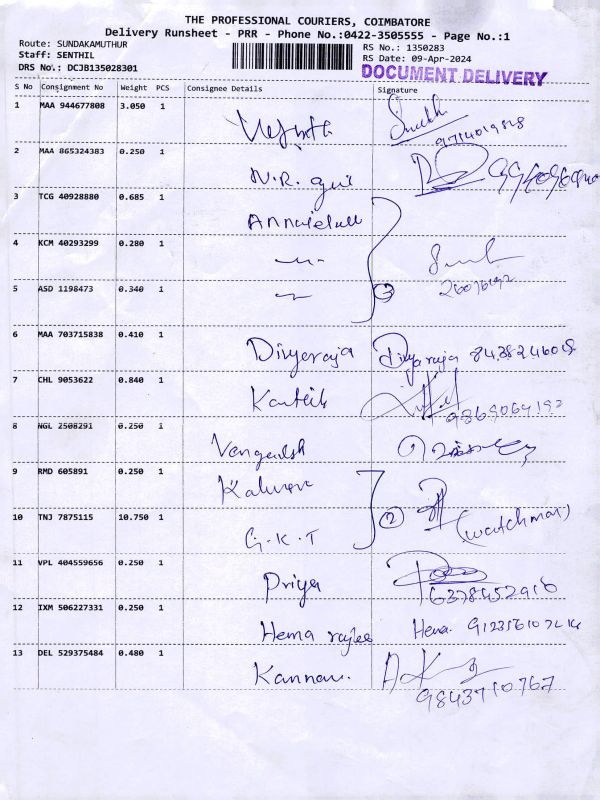 THE PROFESSIONAL COURIERS, COIMBATORE
Delivery Runsheet - PRR - Phone No.:0422-3505555 - Page No.:1
Route: SUNDAKAMUTHUR
RS No.: 1350283
Staff: SENTHIL
RS Date: 09-Apr-2024
DRS No.: DCJB135028301
DOCUMENT DELIVERY
S No Consignment No Weight PCS Consignee Details Signature
1 MAA 944677808 3.050 1
2 MAA 865324383 0.250 1 N.R.
3 TCG 40928880 0.685 1
4 KCM 40293299 0.280 1
5 ASD 1198473 0.340 1 3
6 MAA 703715838 0.410 1 Divyaraja Divyaraja
7 CHL 9053622 0.840 1 Karthik
8 NGL 2508291 0.250 1
9 RMD 605891 0.250 1
10 TNJ 7875115 10.750 1 G.K.T 2 (watchman)
11 VPL 404559656 0.250 1 Priya 6378452916
12 IXM 506227331 0.250 1 Hema Hema
13 DEL 529375484 0.480 1 Kannan. 9843710767